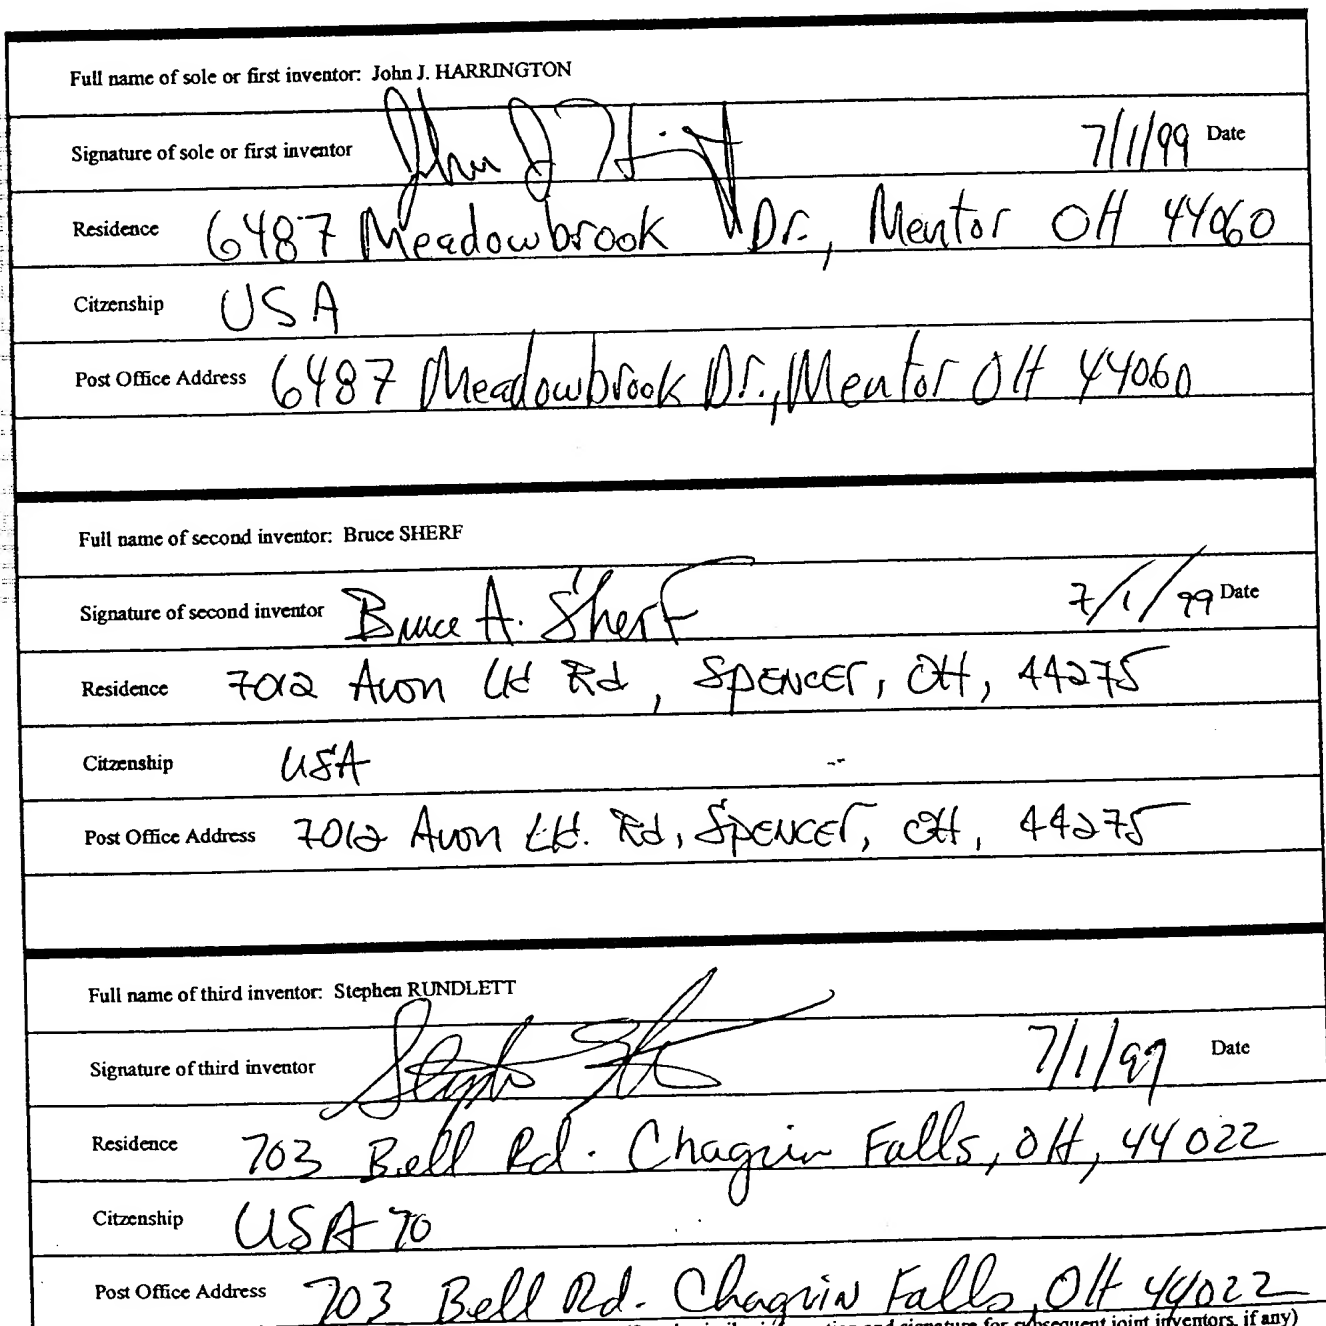 Full name of sole or first inventor: John J. HARRINGTON
Signature of sole or first inventor John J Harringt 7/1/99 Date
Residence 6487 Meadowbrook Dr., Mentor OH 44060
Citzenship USA
Post Office Address 6487 Meadowbrook Dr., Mentor OH 44060
Full name of second inventor: Bruce SHERF
Signature of second inventor Bruce A. Sherf 7/1/99 Date
Residence 7012 Avon Rd, SPENCEr, OH, 44275
Citzenship USA
Post Office Address 7012 Avon Rd, SPENCEr, OH, 44275
Full name of third inventor: Stephen RUNDLETT
Signature of third inventor Stephen 7/1/99 Date
Residence 703 Bell Rd. Chagrin Falls, OH, 44022
Citzenship USA 70
Post Office Address 703 Bell Rd. Chagrin Falls, OH 44022
and signature for subsequent joint inventors, if any)